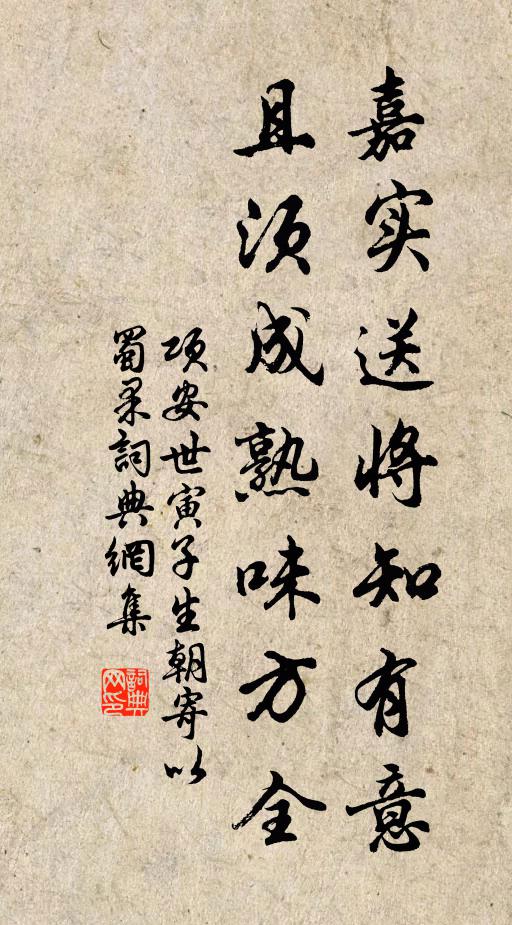 嘉实送将知有意
且须成熟味方全
项安世寅子生朝寄以
蜀果詞典網集
詞典网印